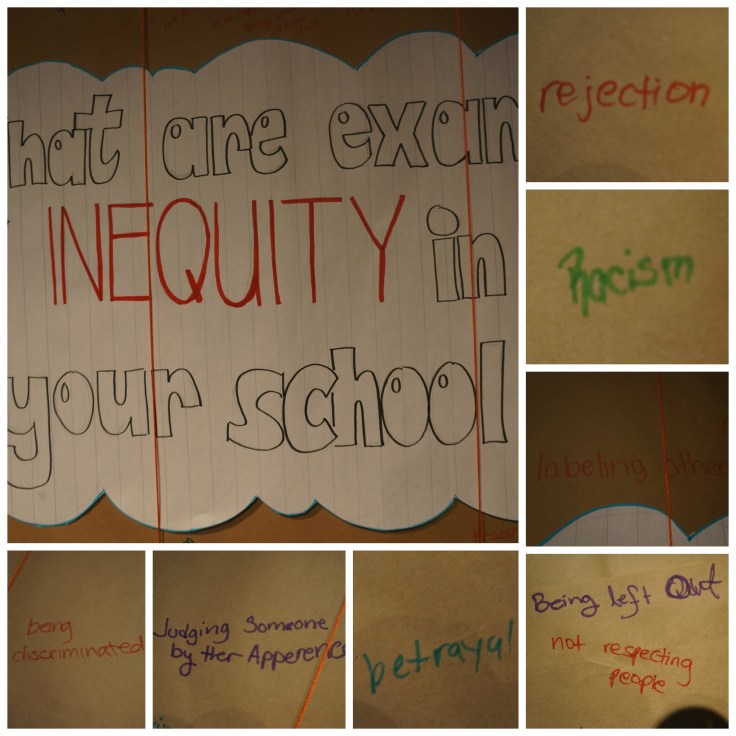 hat are exam
INEQUITY in
your school
rejection
Racism
labeling other
being
discriminated
Judging Someone
by Her Apperence
betrayal
Being left Out
not respecting
people